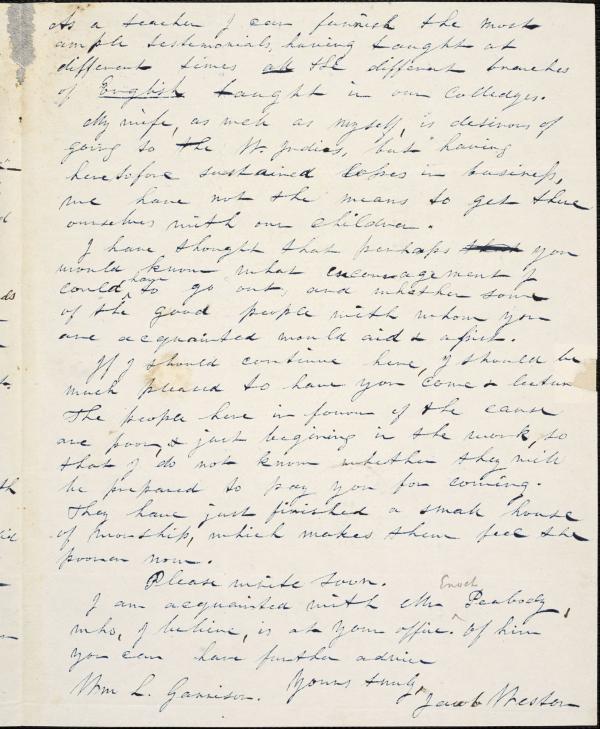 As a teacher I can furnish the most
ample testimonials, having taught at
different times all the different branches
of English taught in our Colledges.
My wife, as well as myself, is desirous of
going to the W. Indies, but having
heretofore sustained losses in business,
we have not the means to get there
ourselves with our children.
I have thought that perhaps that you
would know what encouragement I
could have to go out, and whether some
of the good people with whom you
are acquainted would aid & assist.
If I should continue here, I should be
much pleased to have you come & lecture
The people here in favour of the cause
are poor, & just begining in the work, so
that I do not know whether they will
be prepared to pay you for coming.
They have just finished a small house
of worship, which makes them feel the
poorer now.
Please write soon.
I am acquainted with Mr Enoch Peabody,
who, I believe, is at your office. Of him
you can have further advice
Yours truly,
Wm L. Garrison. Jacob Weston